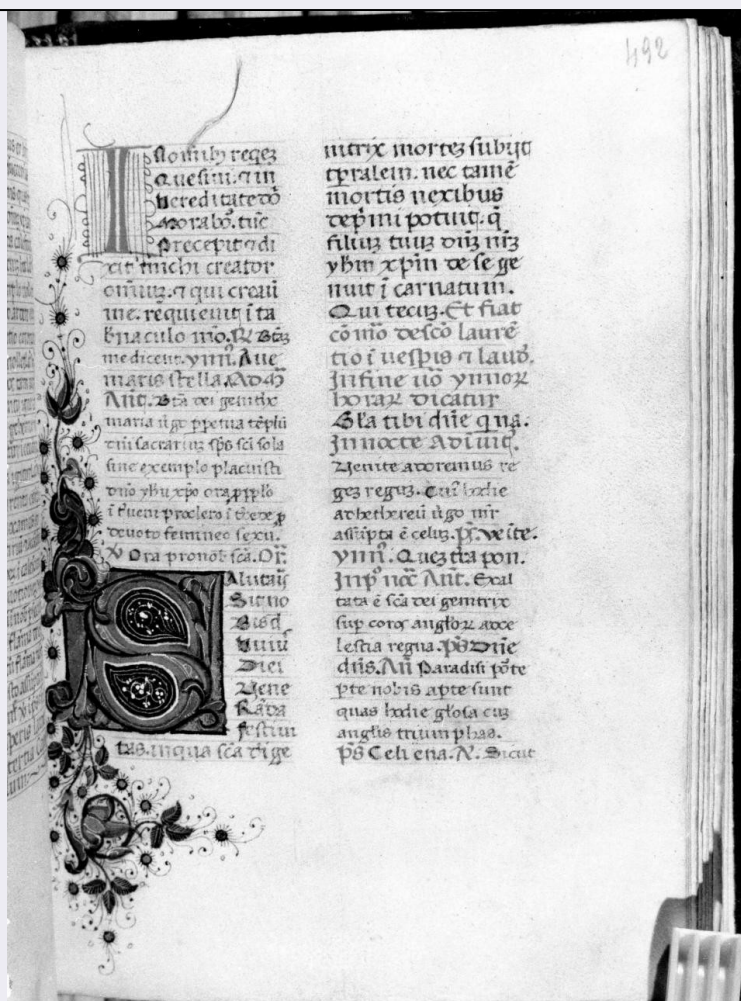 492
In omnibz reqez
Quesiui. ⁊ in
hereditate dō
Morabō. tūc
Precepit ⁊ di
xit michi creator
omniuz. ⁊ qui creaui
me. requieuit ī ta
bnaculo mō. R̃ Btāz
me dicent. ymn. Aue
maris stella. Ad M̃
Ant. Btā dei genitrix
maria ūgo ppetua tēplū
dni sacrariuz sps sci sola
sine exemplo placuisti
dnō yhu xpo ora p pplo
ī tueni pro clero ī tcede p
deuoto femineo sexu.
℣ Ora pro nob sca. Or.
Salutaīs
Sit no
Bis d
huiu
Diei
Uene
Rāda
festiui
tas. in qua sca di ge
nitrix mortez subijt
tpralem. nec tamē
mortis nexibus
depmi potuit. q̄
filiuz tuuz dnz nrz
yhm xpm de se ge
nuit ī carnatum.
Qui tecuz. Et fiat
cōmō de scō laurē
tio ī uespis ⁊ laud.
In fine uō ymnoꝝ
horaꝝ dicatur
Gla tibi dne q na.
In nocte ad iuit.
Uenite adoremus re
gez reguz. Cui hodie
ad hethereū ūgo mr
assūpta ē celuz. ps. ve ite.
ymn. Quez tra pon.
In pº noc Ant. Exal
tata ē scā dei genitrix
sup coros angloꝝ ad ce
lestia regna. ps Dne
dns. Añ Paradisi pōte
pte nobis apte sunt
quas hodie glosa cuz
anglis triumphas.
ps Celi ena. A. Sicut